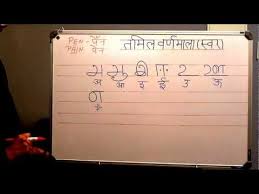 PEN - पॅन
PAIN पेन
तमिल वर्णमाला (स्वर)
அ ஆ இ ஈ உ ஊ
अ आ इ ई उ ऊ
எ